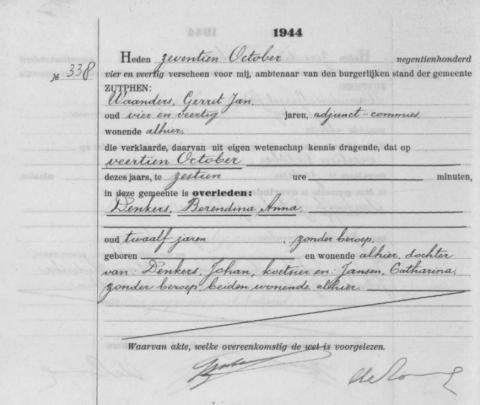 1944
Heden zeventien October negentienhonderd
№ 338 vier en veertig verscheen voor mij, ambtenaar van den burgerlijken stand der gemeente
ZUTPHEN:
Waanders, Gerret Jan,
oud vier en veertig jaren, adjunct-commies,
wonende alhier,
die verklaarde, daarvan uit eigen wetenschap kennis dragende, dat op
veertien October
dezes jaars, te zestien ure minuten,
in deze gemeente is overleden:
Denkers, Berendina Anna,
oud twaalf jaren, zonder beroep,
geboren en wonende alhier, dochter
van: Denkers, Johan, en: Jansen, Catharina,
zonder beroep, beiden wonende alhier.
Waarvan akte, welke overeenkomstig de wet is voorgelezen.